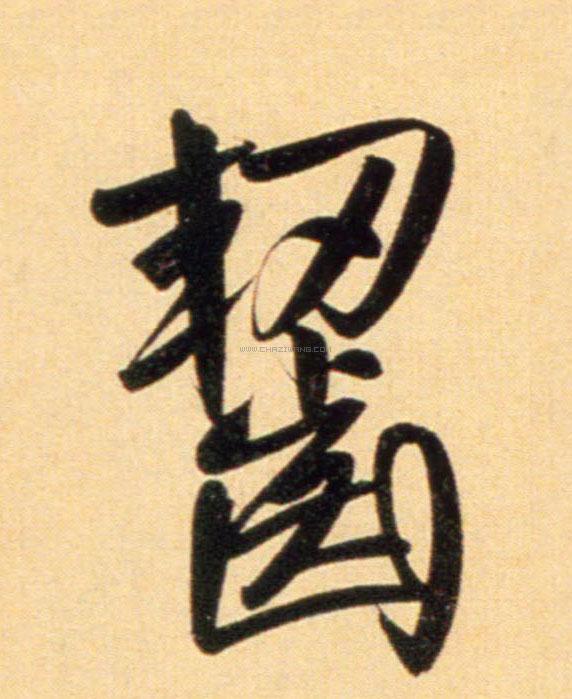 齧
WWW.CHAZIWANG.COM